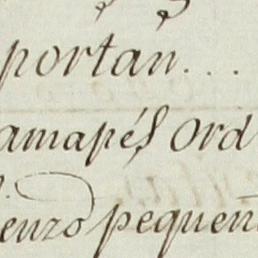 portan...
amapés Ord
enzo pequeñ